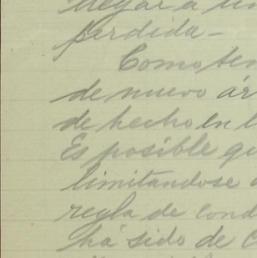 llegar á un
perdida-
Como ten
de nuevo ár
de hecho en l
Es posible qu
limitandose a
regla de cond
há sido de c